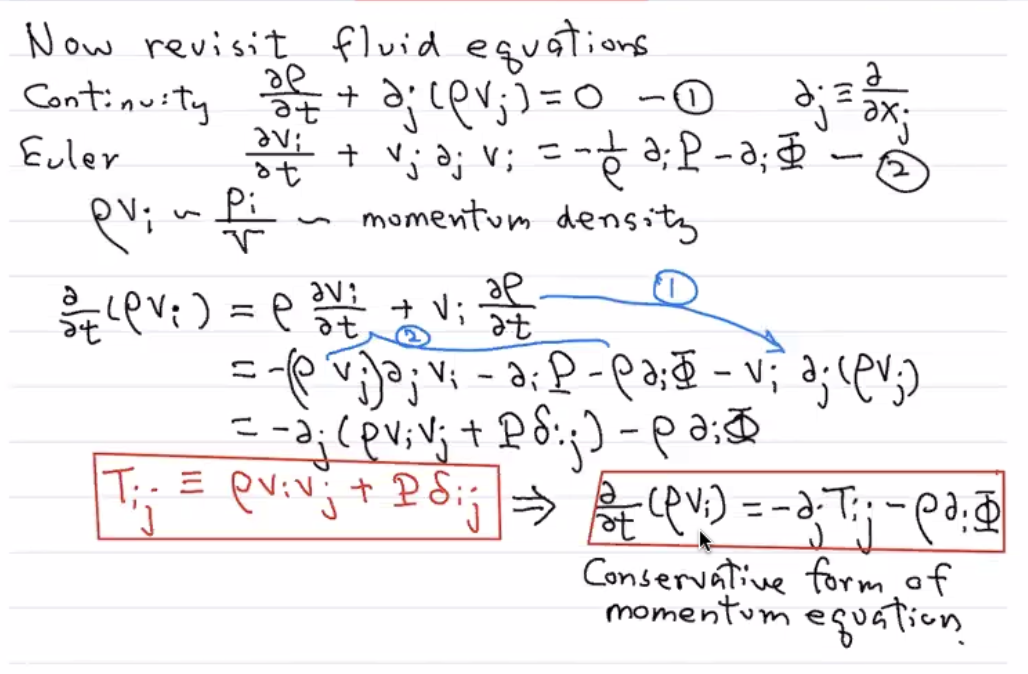 Now revisit fluid equations
Continuity ∂ρ/∂t + ∂_j(ρv_j) = 0 — ① ∂_j ≡ ∂/∂x_j
Euler ∂v_i/∂t + v_j ∂_j v_i = -1/ρ ∂_i P - ∂_i Φ — ②
ρv_i ~ p_i/V ~ momentum density
∂/∂t (ρv_i) = ρ ∂v_i/∂t + v_i ∂ρ/∂t ①
②
= -(ρ v_j)∂_j v_i - ∂_i P - ρ∂_i Φ - v_i ∂_j(ρv_j)
= -∂_j(ρv_i v_j + P δ_ij) - ρ ∂_i Φ
T_ij ≡ ρv_i v_j + P δ_ij ⇒ ∂/∂t (ρv_i) = -∂_j T_ij - ρ∂_i Φ
Conservative form of
momentum equation.